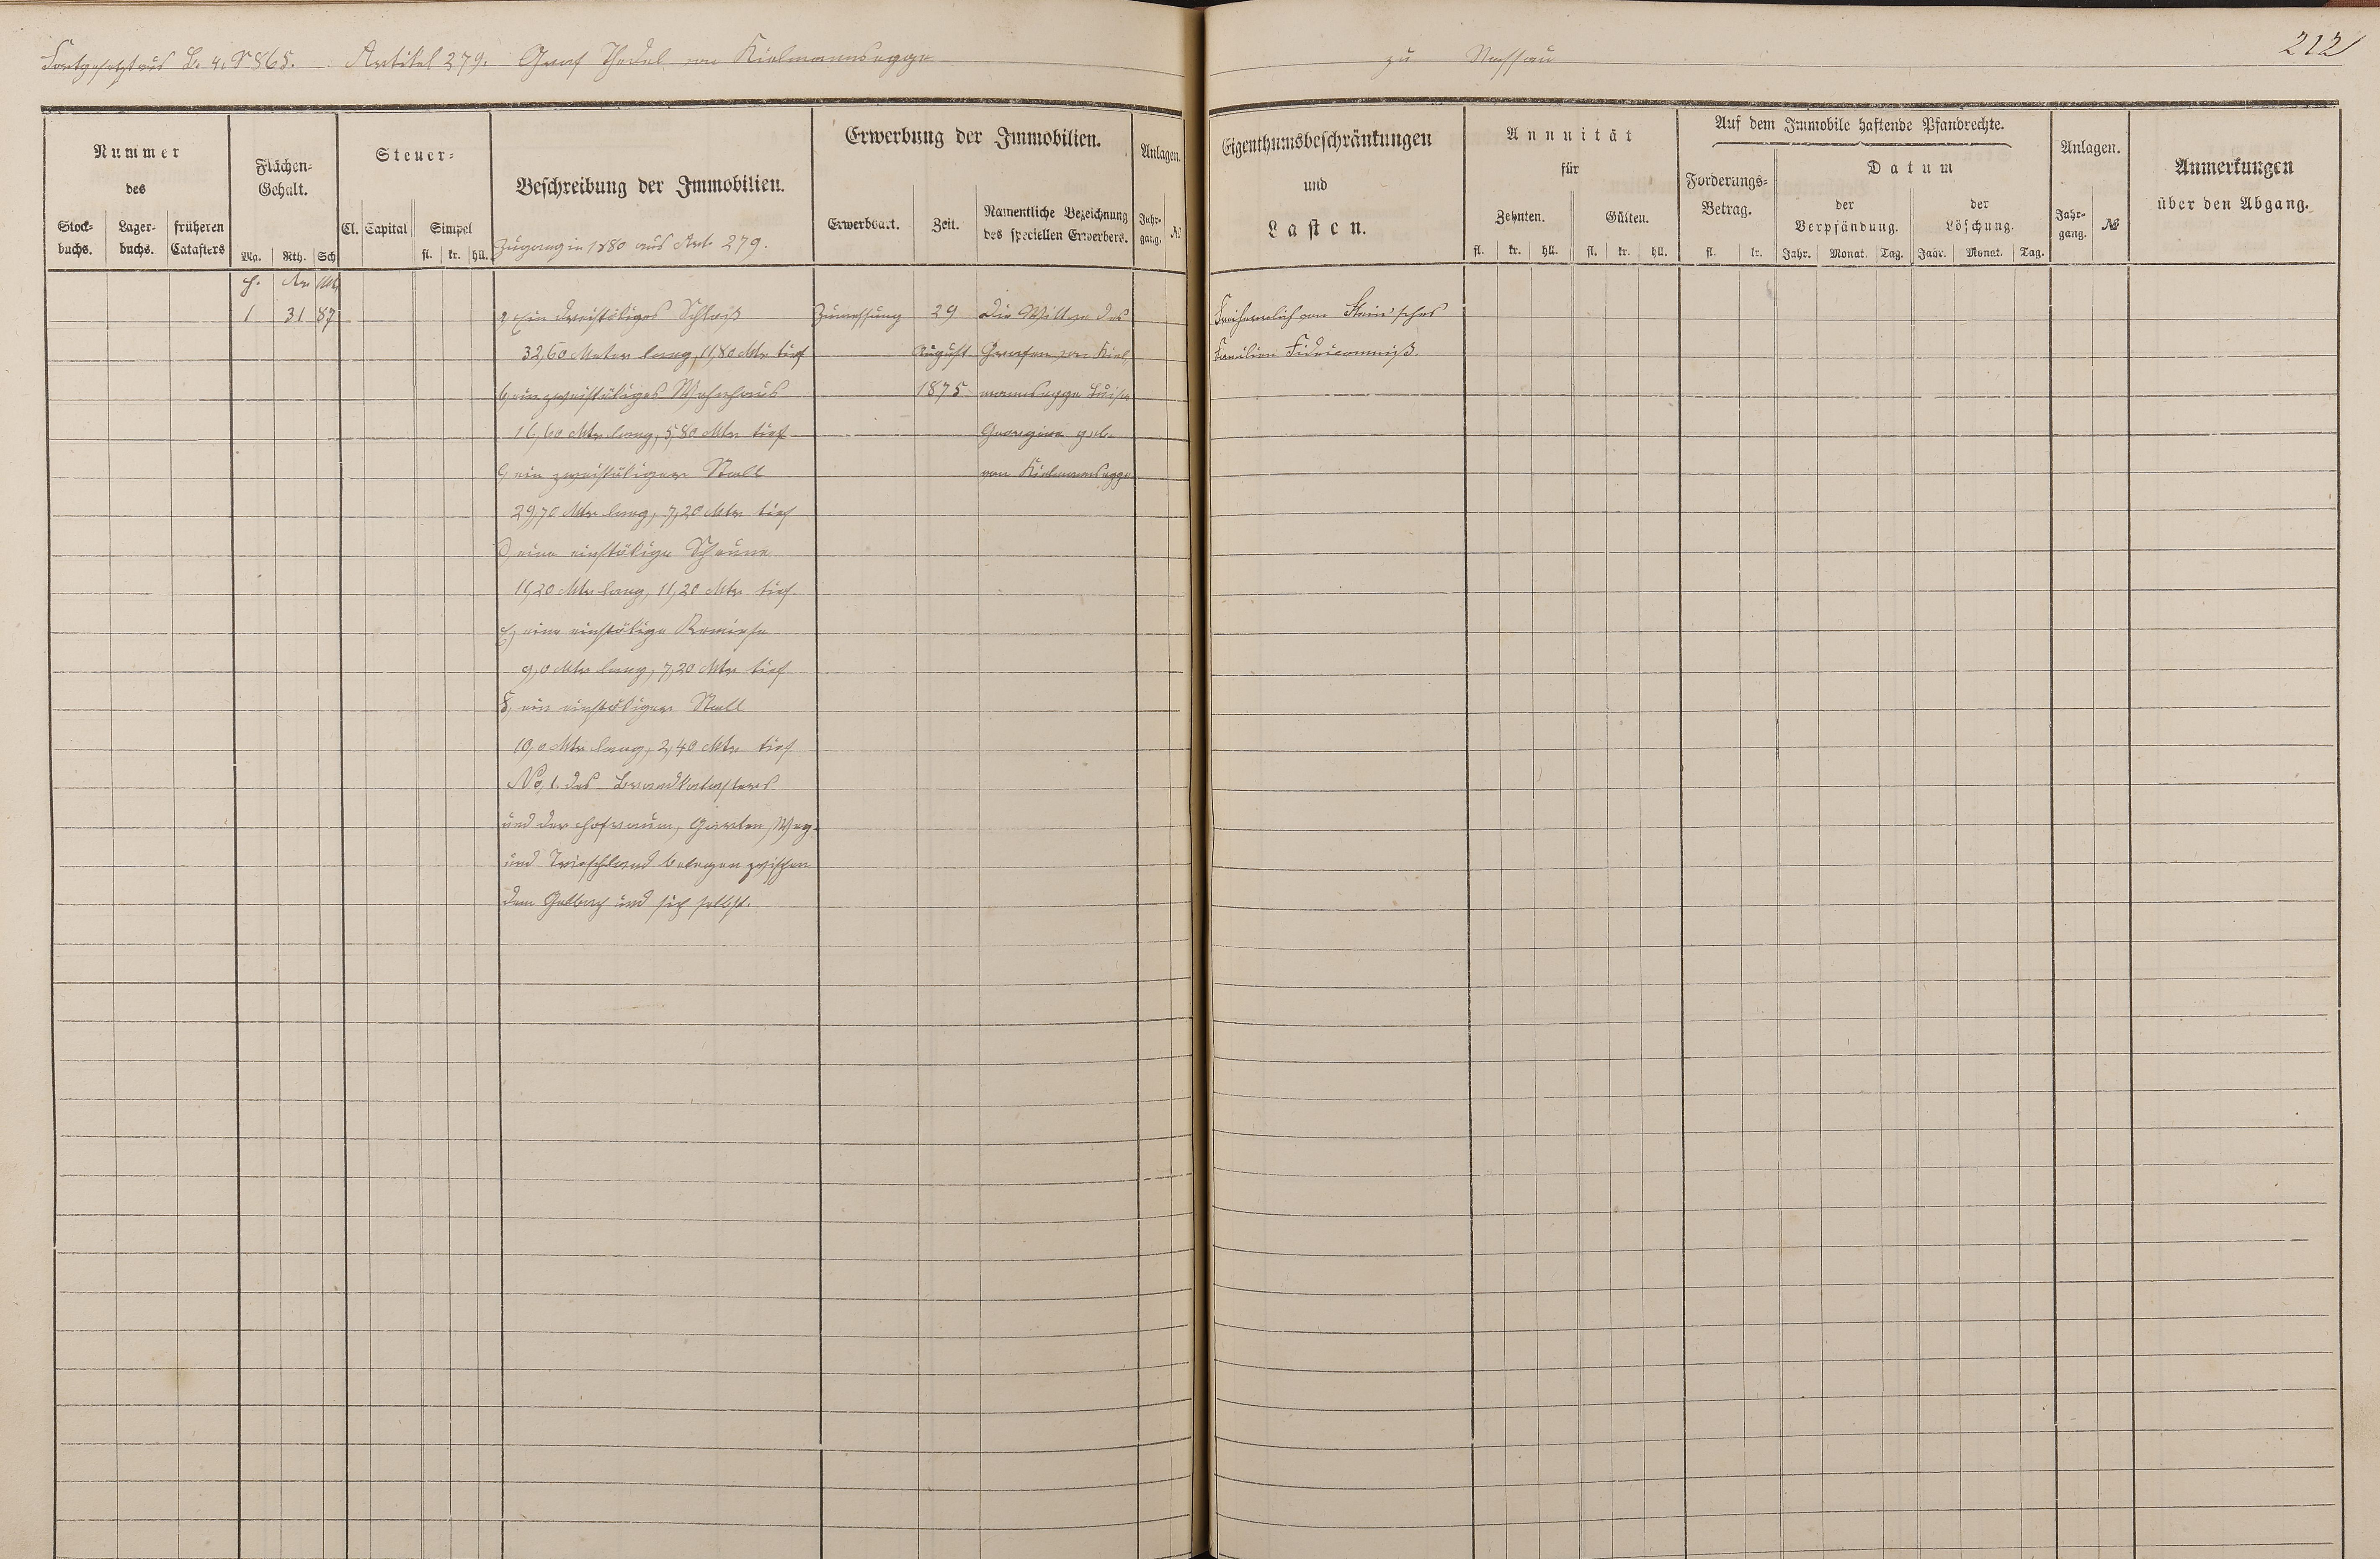 Fortgesetzt aus B. 4. S 865. Artikel 279. Graf Thedel von Kielmannsegge zu Nassau 212
Nummer
des
Stock-
buchs.
Lager-
buchs.
früheren
Catasters
Flächen-
Gehalt.
Mg. Rth. Sch
Steuer-
Cl. Capital Simpel
fl. kr. hll.
Beschreibung der Immobilien.
Zugang in 1880 aus Art. 279.
Erwerbung der Immobilien.
Erwerbsart. Zeit.
Namentliche Bezeichnung
des speciellen Erwerbers.
Anlagen.
Jahr-
gang. №
Eigenthumsbeschränkungen
und
Lasten.
Annuität
für
Zehnten. Gülten.
fl. kr. hll. fl. kr. hll.
Auf dem Immobile haftende Pfandrechte.
Forderungs-
Betrag.
fl. kr.
Datum
der
Verpfändung.
der
Löschung.
Jahr. Monat. Tag. Jahr. Monat. Tag.
Anlagen.
Jahr-
gang. №
Anmerkungen
über den Abgang.
H. Ar. M
1 31 87 a, Ein dreistökiges Schloß Zumessung 29 die Wittwe des Freiherrlich von Stein'sches
32,60 Meter lang, 11,80 Mtr tief August Grafen von Kiel- Familien Fideicommiß.
b, ein zweistökiges Wohnhaus 1875 mannsegge Luise
16,60 Mtr lang, 5,80 Mtr tief Georgine geb.
c, ein zweistökiger Stall von Kielmannsegge
29,70 Mtr lang, 7,20 Mtr tief
d, eine einstökige Scheune
11,20 Mtr lang, 11,20 Mtr tief.
e, eine einstökige Remise
9,0 Mtr lang, 7,20 Mtr tief
f, ein einstökiger Stall
10,0 Mtr lang, 2,40 Mtr tief
No, 1. des Brandkatasters
und der Hofraum, Garten, Weg
und Trieschland belegen zwischen
dem Gelbach und sich selbst.